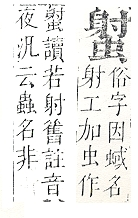 俗字因蜮名
射工加虫作
讀若射舊註音
夜汎云蟲名非